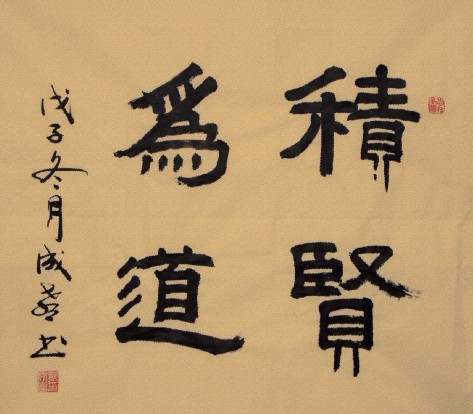 積賢
為道
戊子冬月成巷书